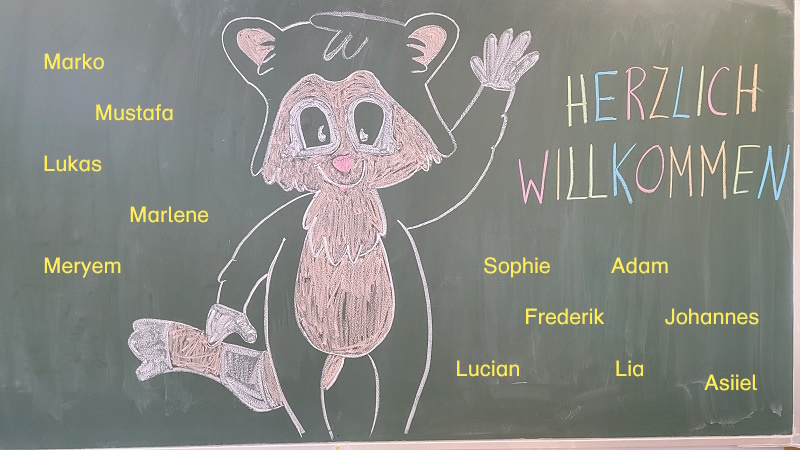 Marko
Mustafa
Lukas
Marlene
Meryem
HERZLICH
WILLKOMMEN
Sophie Adam
Frederik Johannes
Lucian Lia
Asiiel